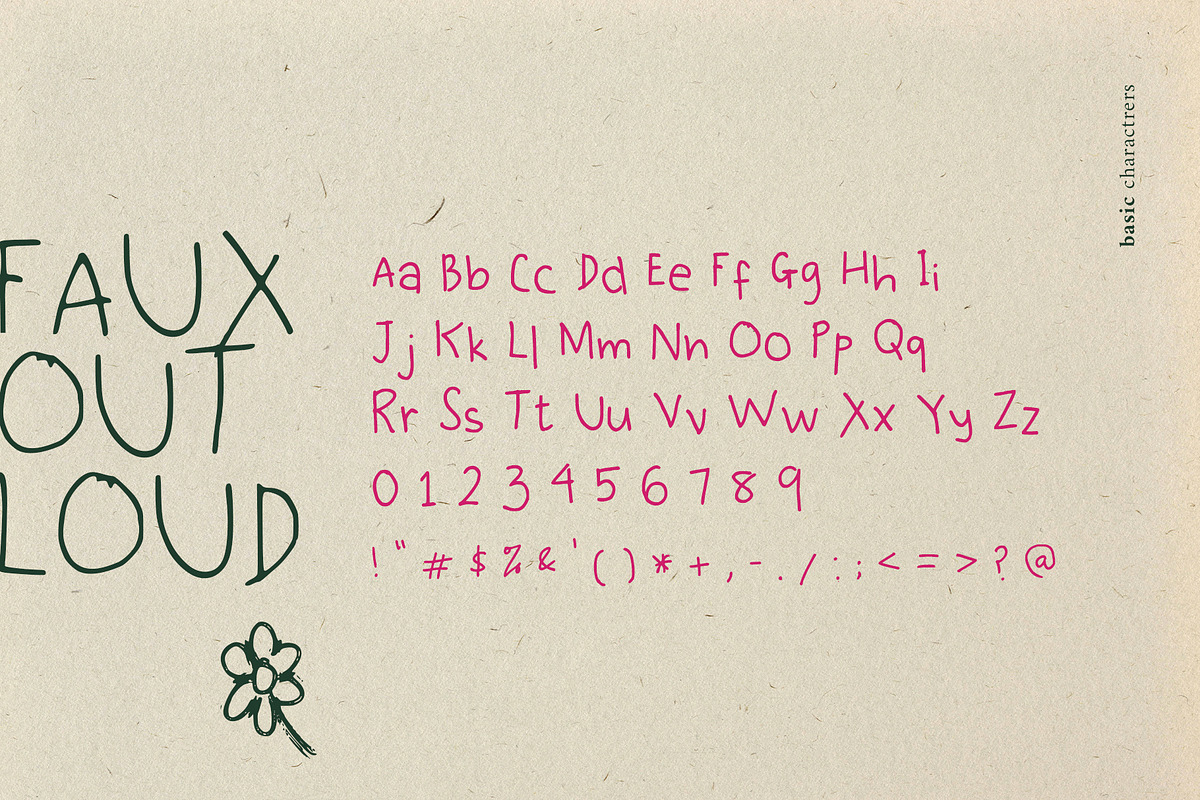 FAUX
OUT
LOUD
Aa Bb Cc Dd Ee Ff Gg Hh Ii
Jj Kk Ll Mm Nn Oo Pp Qq
Rr Ss Tt Uu Vv Ww Xx Yy Zz
0 1 2 3 4 5 6 7 8 9
! " # $ % & ' ( ) * + , - . / : ; < = > ? @
basic charactrers